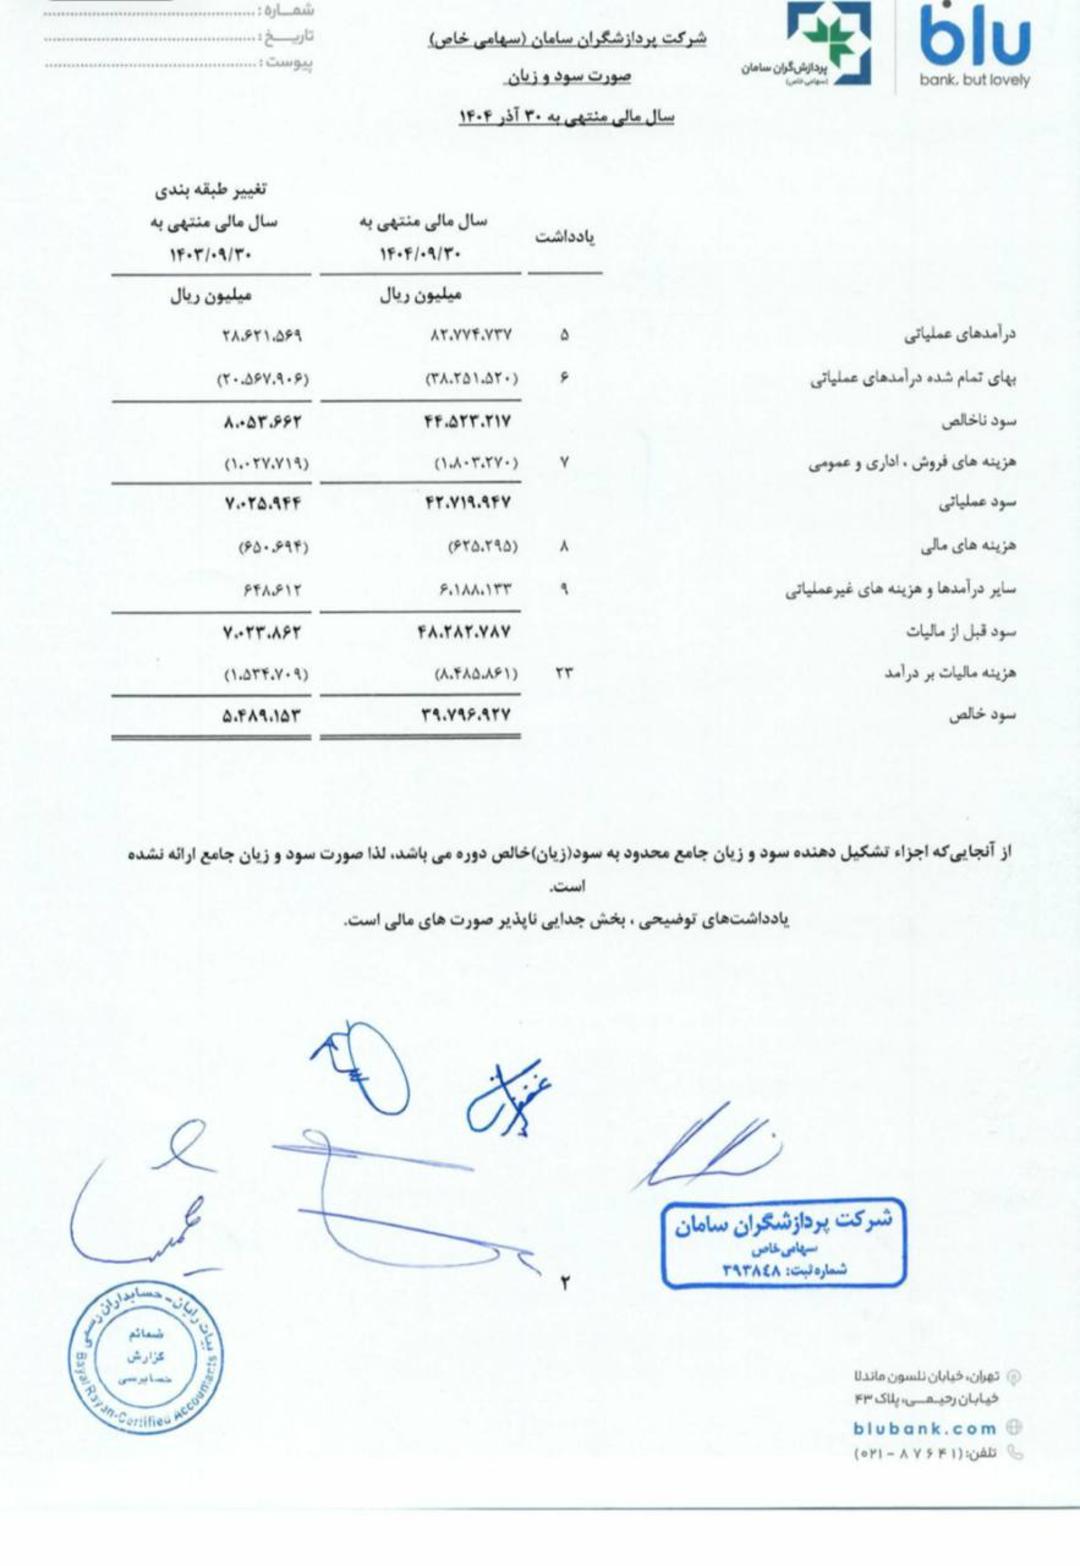 شماره :
تاریخ :
پیوست :
blu
bank, but lovely
پردازش‌گران سامان
(سهامی خاص)
شرکت پردازشگران سامان (سهامی خاص)
صورت سود و زیان
سال مالی منتهی به ۳۰ آذر ۱۴۰۴
یادداشت سال مالی منتهی به ۱۴۰۴/۰۹/۳۰ تغییر طبقه بندی سال مالی منتهی به ۱۴۰۳/۰۹/۳۰
میلیون ریال میلیون ریال
درآمدهای عملیاتی ۵ ۸۲.۷۷۴.۷۳۷ ۲۸.۶۲۱.۵۶۹
بهای تمام شده درآمدهای عملیاتی ۶ (۳۸.۲۵۱.۵۲۰) (۲۰.۵۶۷.۹۰۶)
سود ناخالص ۴۴.۵۲۳.۲۱۷ ۸.۰۵۳.۶۶۲
هزینه های فروش ، اداری و عمومی ۷ (۱.۸۰۳.۲۷۰) (۱.۰۲۷.۷۱۹)
سود عملیاتی ۴۲.۷۱۹.۹۴۷ ۷.۰۲۵.۹۴۴
هزینه های مالی ۸ (۶۲۵.۲۹۵) (۶۵۰.۶۹۴)
سایر درآمدها و هزینه های غیرعملیاتی ۹ ۶.۱۸۸.۱۳۳ ۶۴۸.۶۱۲
سود قبل از مالیات ۴۸.۲۸۲.۷۸۷ ۷.۰۲۳.۸۶۲
هزینه مالیات بر درآمد ۲۳ (۸.۴۸۵.۸۶۱) (۱.۵۳۴.۷۰۹)
سود خالص ۳۹.۷۹۶.۹۲۷ ۵.۴۸۹.۱۵۳
از آنجایی‌که اجزاء تشکیل دهنده سود و زیان جامع محدود به سود(زیان)خالص دوره می باشد، لذا صورت سود و زیان جامع ارائه نشده
است.
یادداشت‌های توضیحی ، بخش جدایی ناپذیر صورت های مالی است.
شرکت پردازشگران سامان
سهامی خاص
شماره ثبت: ۳۹۳۸٤۸
۲
بیات رایان - حسابداران رسمی
ضمائم
گزارش
حسابرسی
Bayat Rayan-Certified Accountants
تهران، خیابان نلسون ماندلا
خیابان رحیمی، پلاک ۴۳
blubank.com
تلفن: (۰۲۱ - ۸۷۶۴۱)